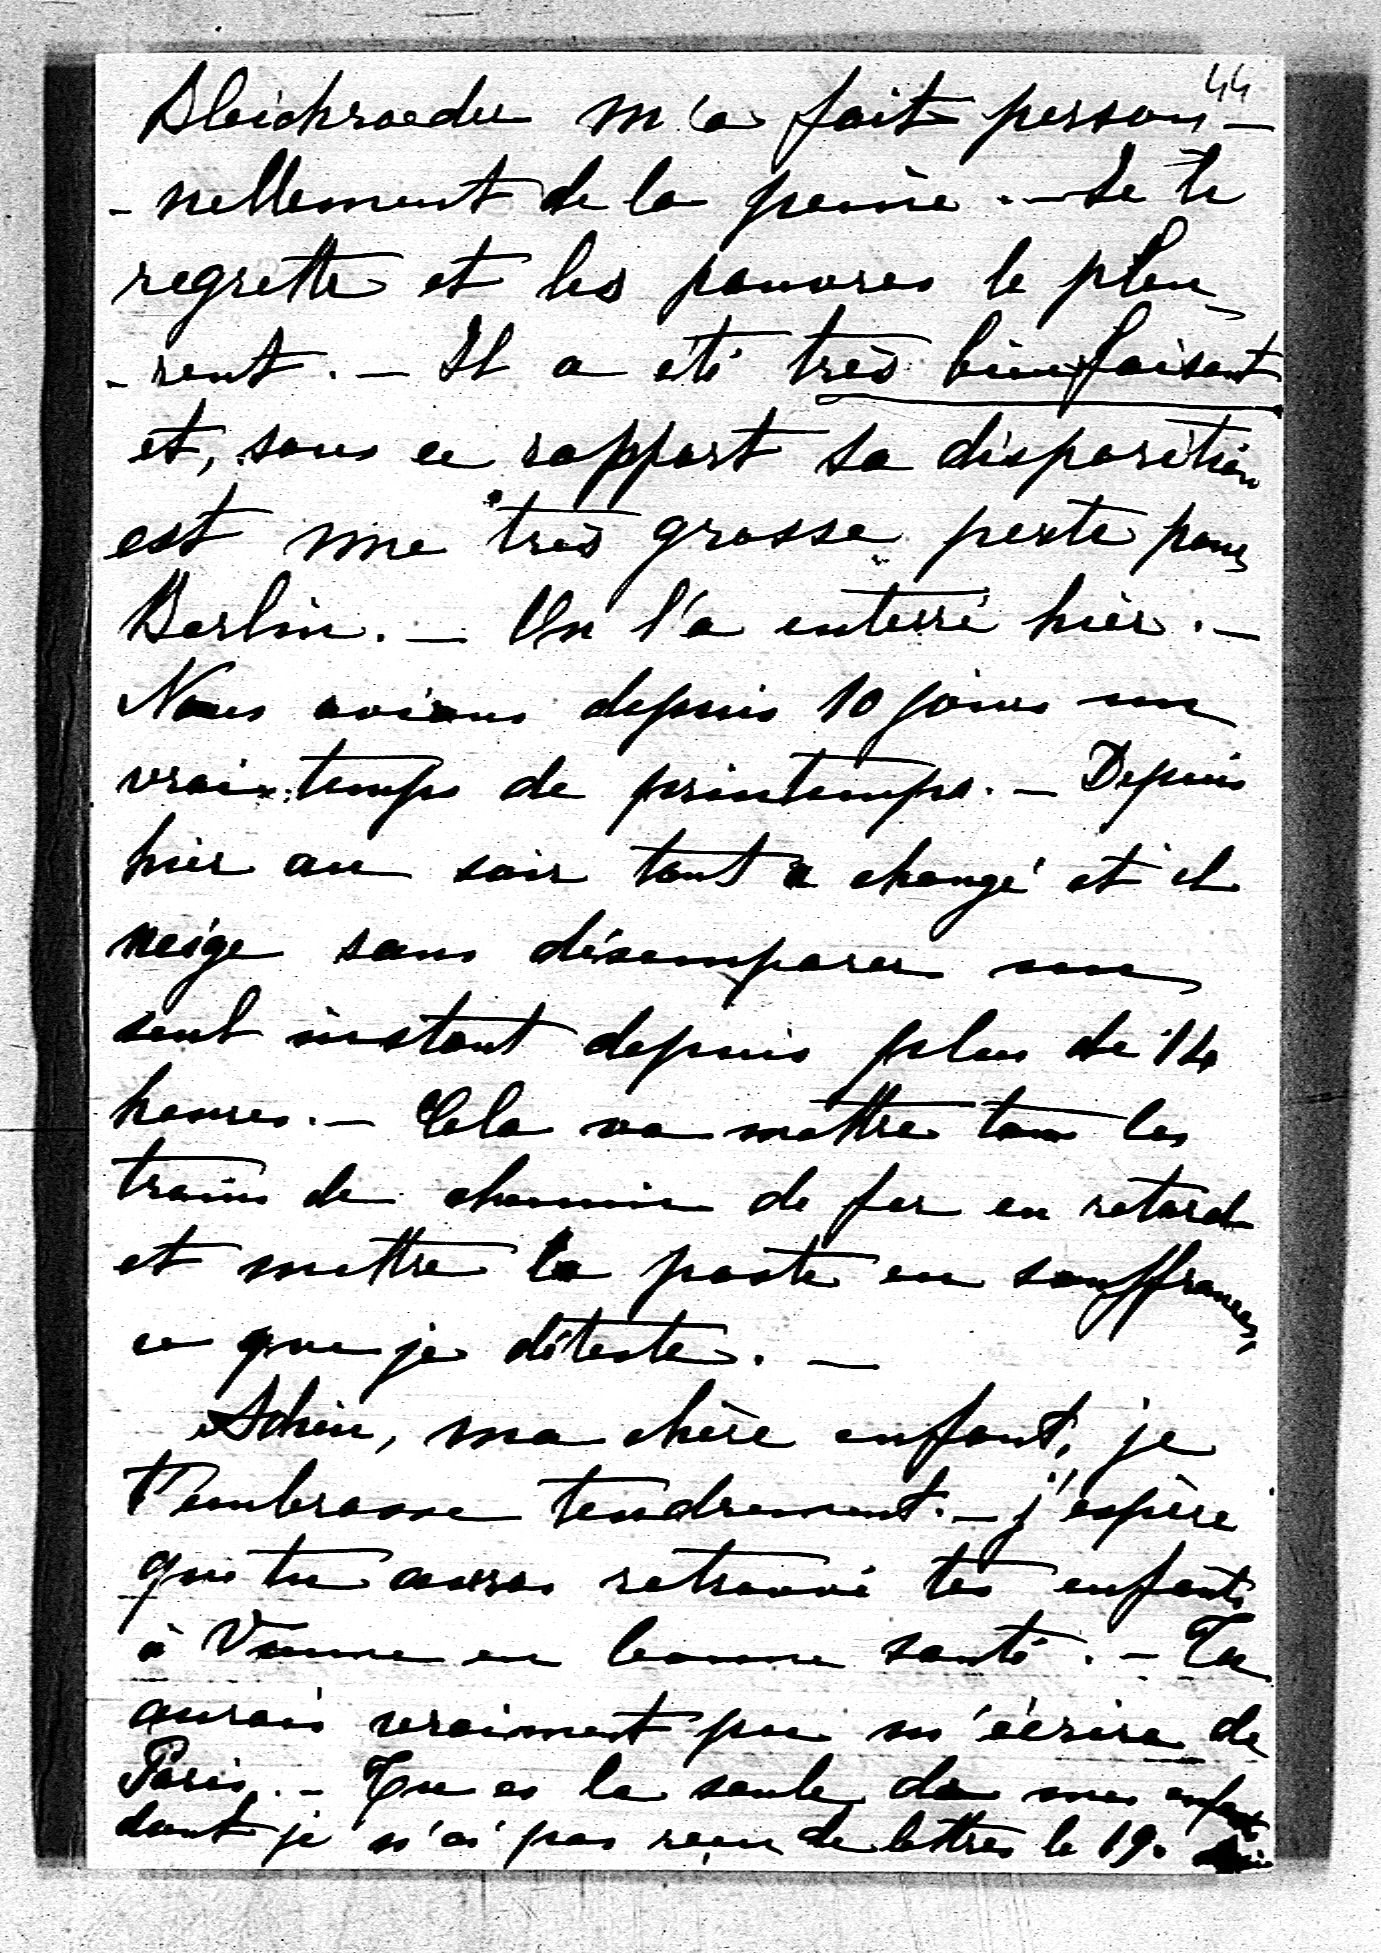 44
Bleichroeder m'a fait person-
-nellement de la peine. - Je le
regrette et les pauvres le pleu-
-rent. - Il a été très bienfaisant
et, sous ce rapport sa disparition
est une très grosse perte pour
Berlin. - On l'a enterré hier. -
Nous avions depuis 10 jours un
vrai temps de printemps. - Depuis
hier au soir tout a changé et il
neige sans désemparer un
seul instant depuis plus de 14
heures. - Cela va mettre tous les
trains de chemin de fer en retard
et mettre la poste en souffrance,
ce que je déteste. -
Adieu, ma chère enfant, je
t'embrasse tendrement. - j'espère
que tu auras retrouvé tes enfants
à Vienne en bonne santé. - Tu
aurais vraiment pu m'écrire de
Paris. - Tu es la seule de mes enfants
dont je n'ai pas reçu de lettres le 19.